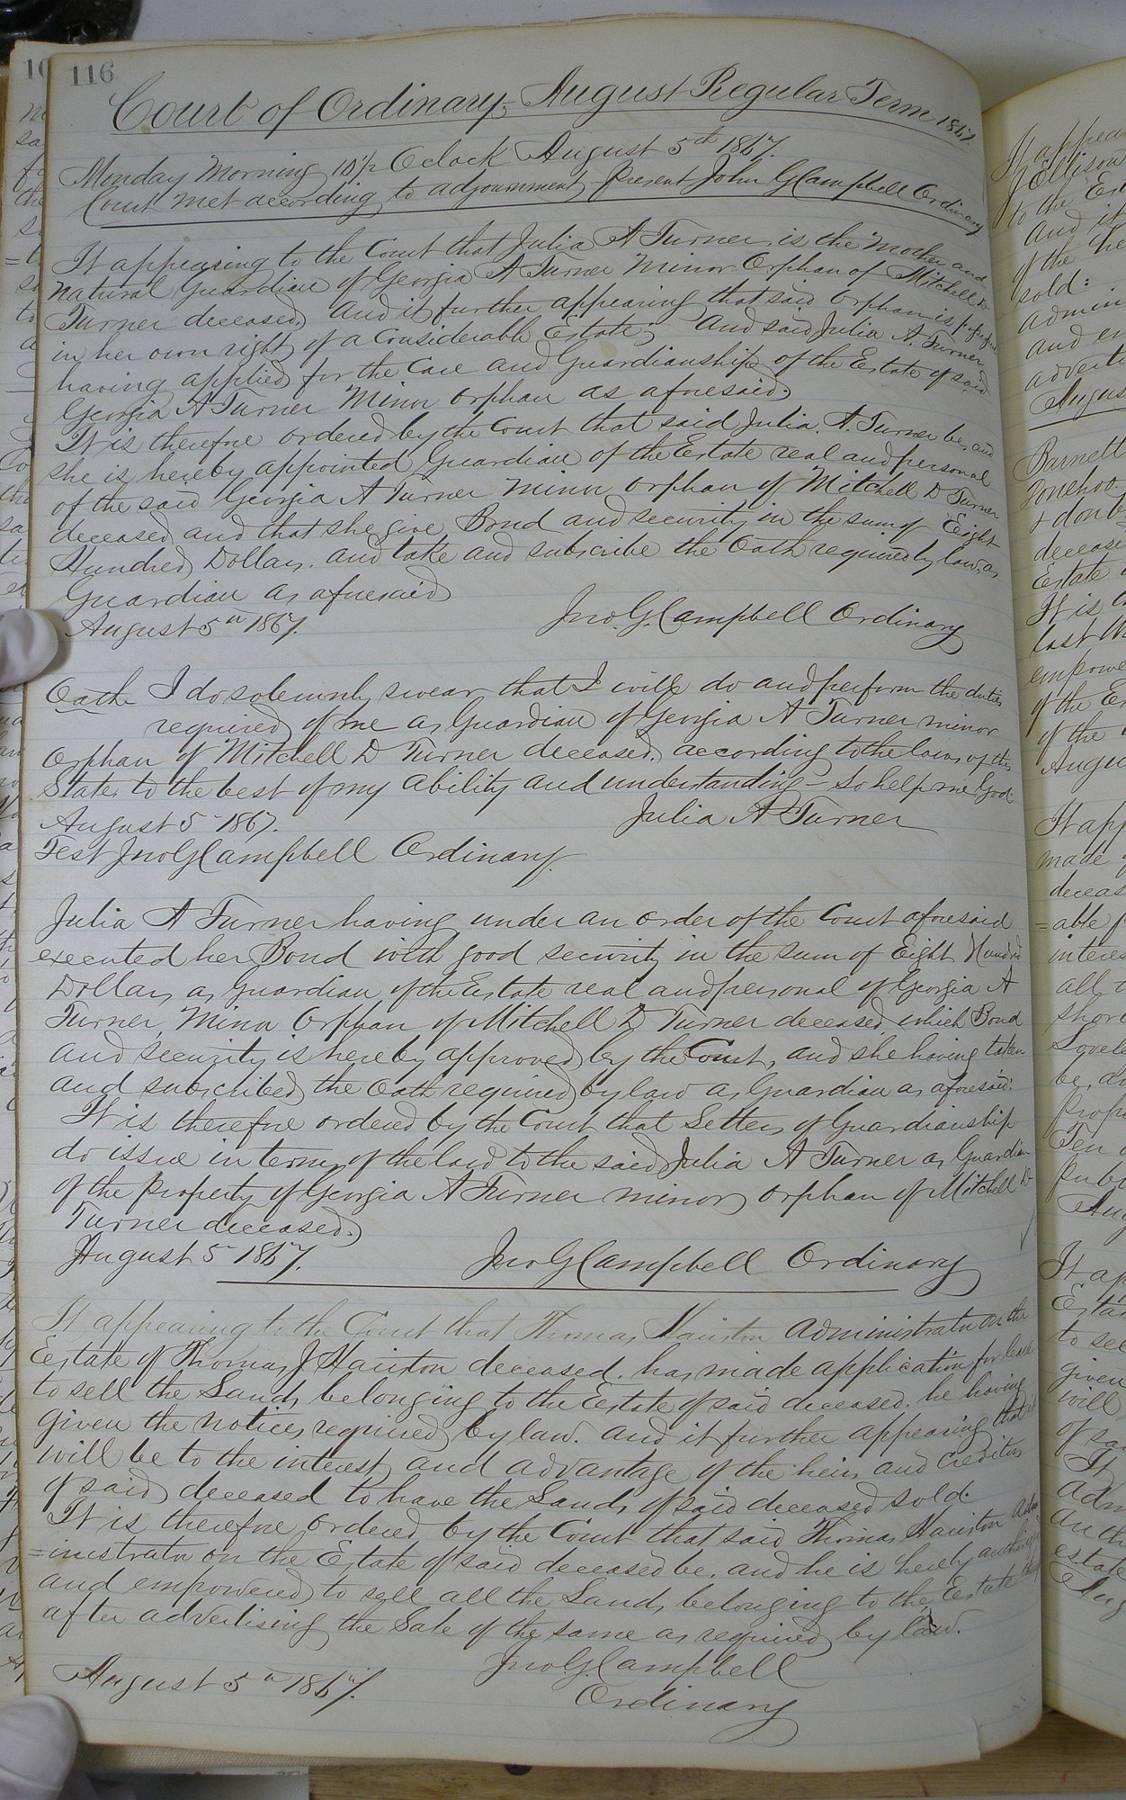 116
Court of Ordinary, August Regular Term 1867.
Monday Morning 10 Oclock August 5th 1867.
Court met according to adjournment, Present John G Campbell Ordinary
It appearing to the Court that Julia A Turner is the Mother and
natural Guardian of Georgia A Turner Minor Orphan of Mitchell D
Turner deceased, And it further appearing that said orphan is
in her own right of a Considerable Estate; And said Julia A. Turner
having applied for the Care and Guardianship of the Estate of said
Georgia A Turner Minor orphan as aforesaid,
It is therefore ordered by the Court that said Julia. A. Turner be, and
she is hereby appointed Guardian of the Estate real and personal
of the said Georgia A Turner Minor orphan of Mitchell D Turner
deceased and that she give Bond and security in the sum of Eight
Hundred Dollars. and take and subscribe the Oath required by law, as
Guardian as aforesaid
August 5th 1867.
Jno. G. Campbell Ordinary
Oath I do solemnly swear, that I will do and perform the duties
required of me as Guardian of Georgia A Turner minor
Orphan of Mitchell D Turner deceased, according to the laws of this
State, to the best of my ability and understanding - So help me God
August 5 1867.
Julia A Turner
Test Jno G Campbell Ordinary.
Julia A Turner having under an order of the Court aforesaid
executed her Bond with good security in the sum of Eight Hundred
Dollars as Guardian of the Estate real and personal of Georgia A
Turner, Minor Orphan of Mitchell D Turner deceased, which Bond
and security is hereby approved by the Court, and she having taken
and subscribed the Oath required by law as Guardian as aforesaid:
It is therefore ordered by the Court that Letters of Guardianship
do issue in terms of the law to the said Julia A Turner as Guardian
of the Property of Georgia A Turner minor orphan of Mitchell D
Turner deceased.
August 5 1867.
Jno G Campbell Ordinary
It appearing to the Court that Thomas Hairston Administrator on the
Estate of Thomas J Hairston deceased. has made application for leave
to sell the Lands belonging to the Estate of said deceased. he having
given the notices required by law. and it further appearing that it
will be to the interest and advantage of the heirs and Creditors
of said deceased to have the Lands of said deceased sold.
It is therefore ordered by the Court that said Thomas Hairston Adm
=inistrator on the Estate of said deceased be, and he is hereby
and empowered to sell all the Lands belonging to the Estate
after advertising the Sale of the same as required by law.
August 5th 1867.
Jno. G. Campbell
Ordinary